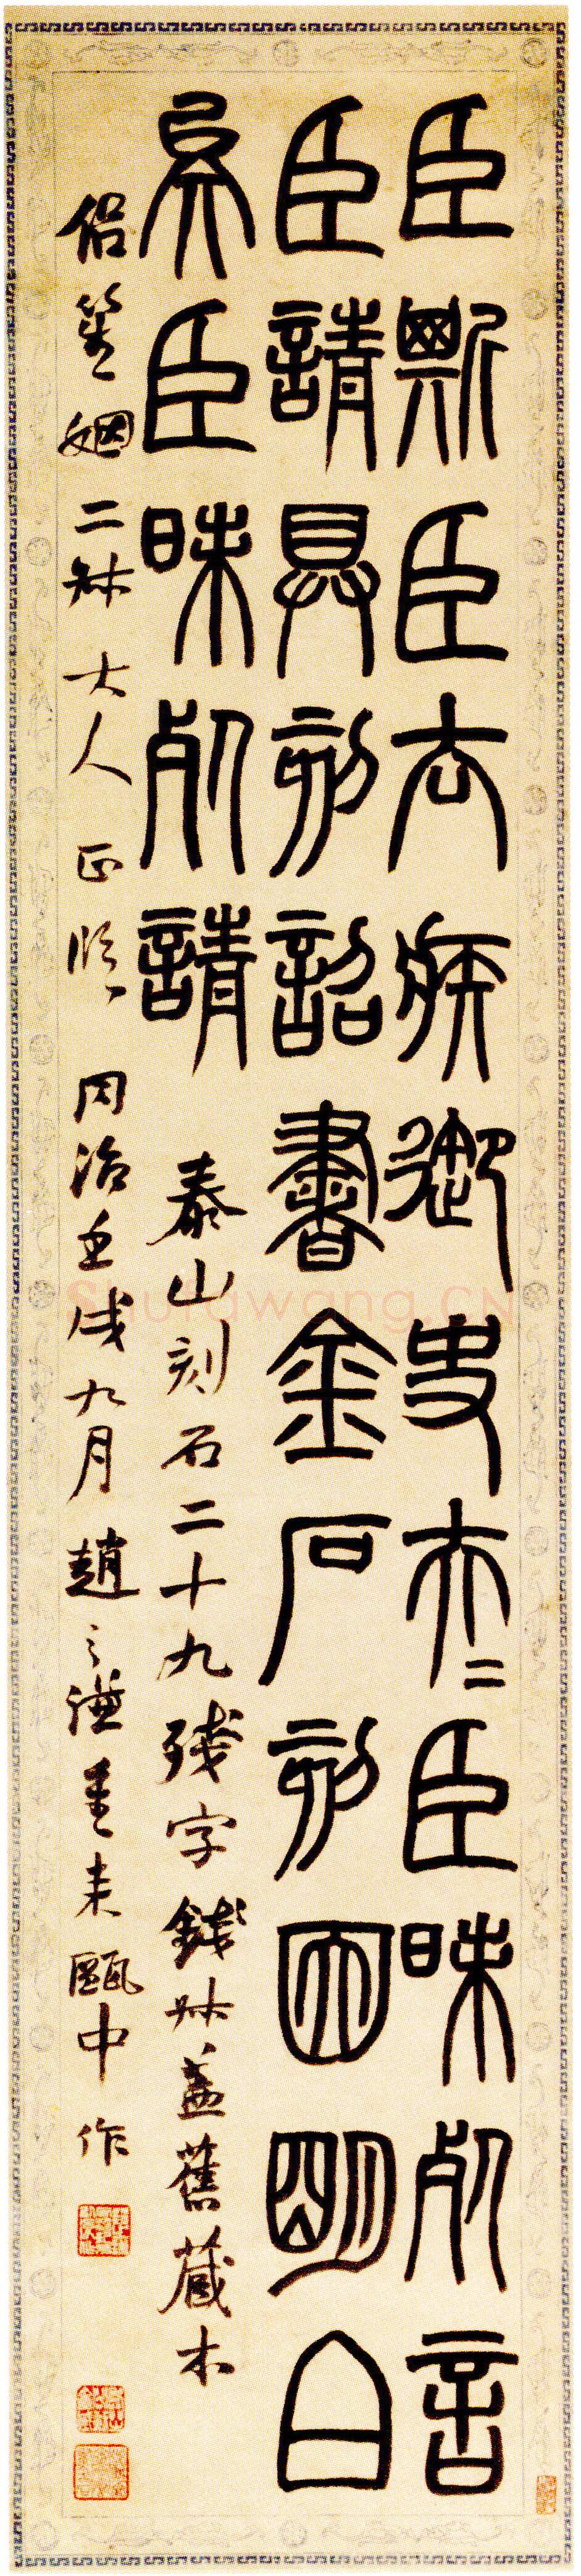 臣斯臣去疾御史夫=臣昧死言
臣請具刻詔書金石刻因明白
矣臣昧死請 泰山刻石二十九殘字錢叔蓋舊藏本
侶笙姻二叔大人正臨 同治壬戌九月趙之謙重來甌中作
Shufawang.CN